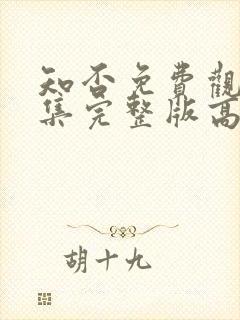 知否免費觀
集完整版高
胡十九